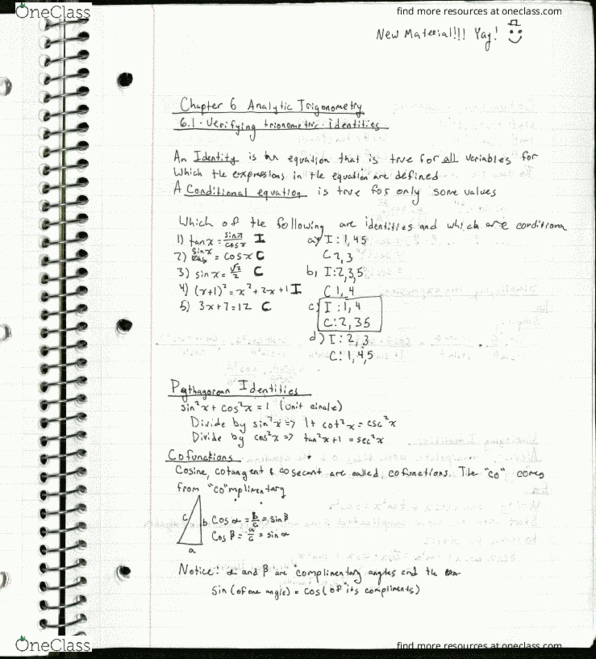 OneClass
find more resources at oneclass.com
New Material!!! Yay!
Chapter 6 Analytic Trigonometry
6.1 - Verifying trionometric identities
An Identity is an equation that is true for all variables for
which the expressions in the equation are defined
A Conditional equation is true for only some values
Which of the following are identities and which are conditiona
1) tan x = sin x/cos x I
a) I: 1,4,5
C 2,3
2) = cos x C
b) I: 2,3,5
C 1,4
3) sin x = √2/2 C
4) (x+1)² = x² + 2x + 1 I
c) I: 1,4
C: 2,3 5
5) 3x+7=12 C
d) I: 2,3
C: 1,4,5
Pythagorean Identities
sin²x + cos²x = 1 (unit circle)
Divide by sin²x => 1 + cot²x = csc²x
Divide by cos²x => tan²x + 1 = sec²x
Cofunctions
Cosine, cotangent & cosecant are called cofunctions. The "co" comes
from "co"mplimentary
c b a
Cos α = b/c = sin β
Cos β = a/c = sin α
Notice: α and β are complimentary angles and the
Sin (of one angle) = cos (of its compliments)
OneClass
find more resources at oneclass.com